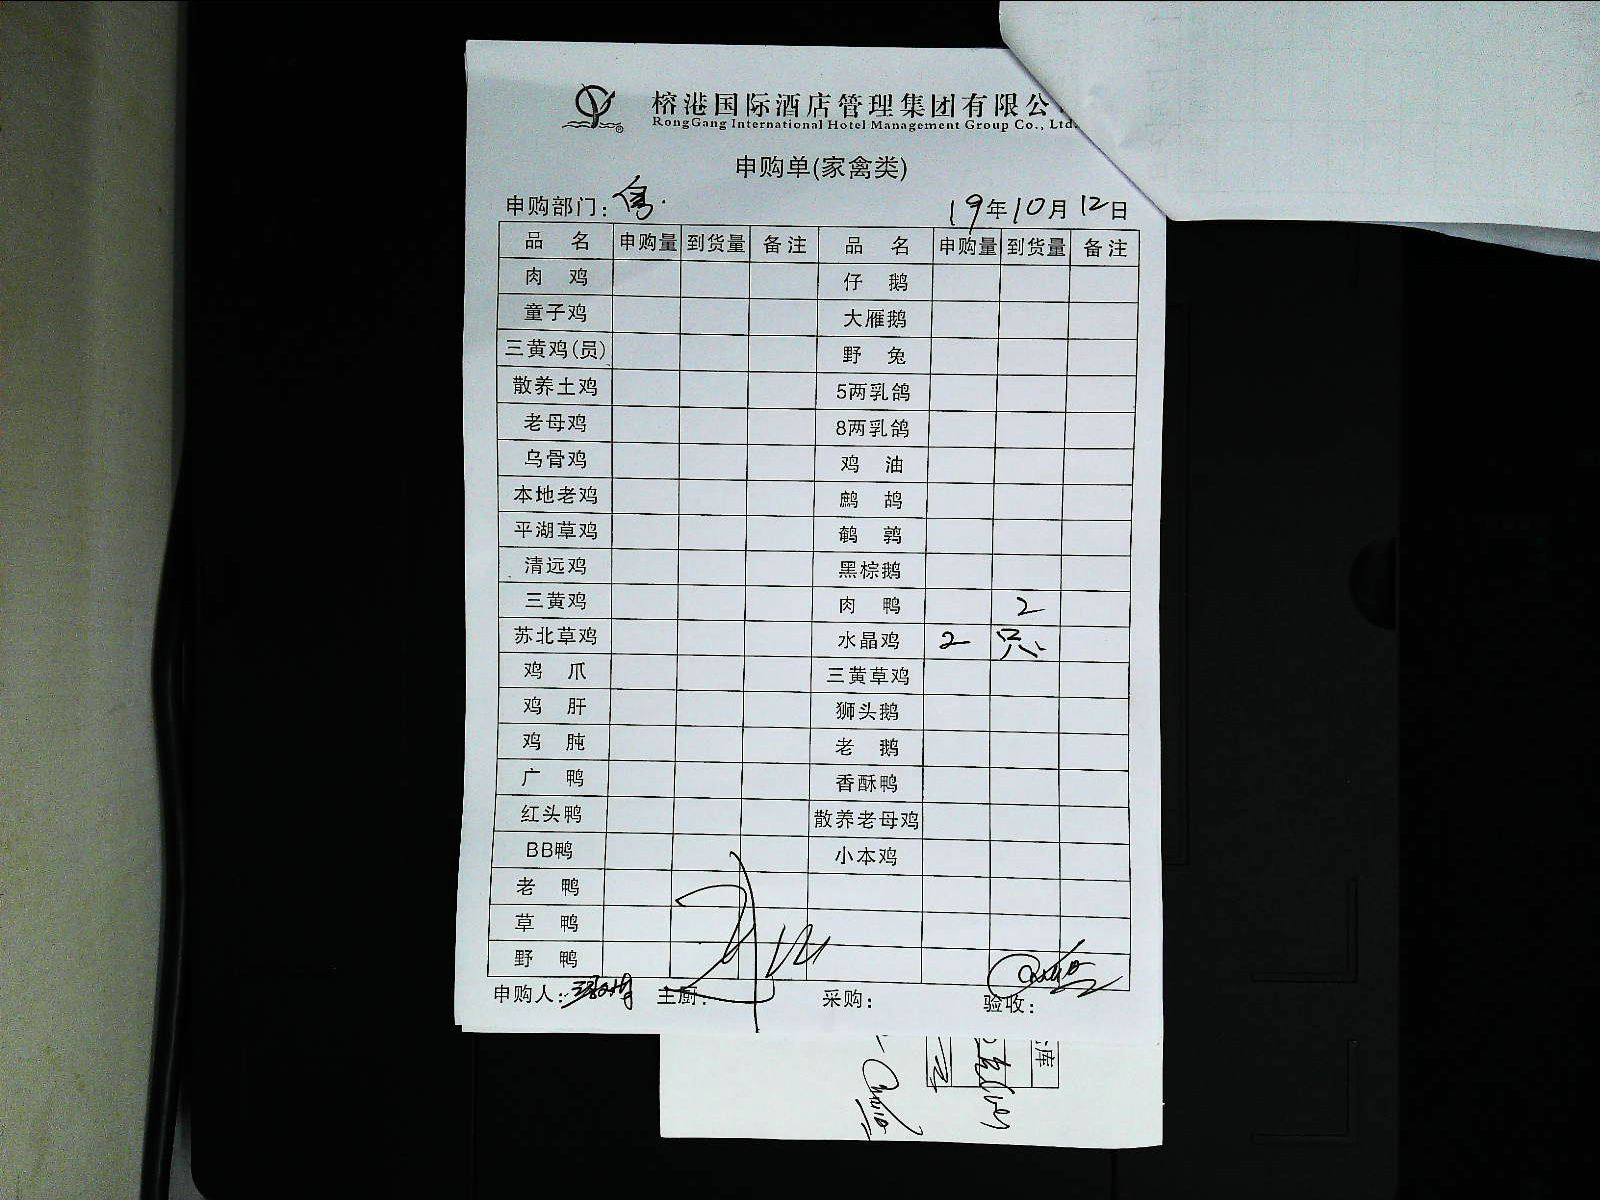 榕港国际酒店管理集团有限公
RongGang International Hotel Management Group Co., Ltd.
申购单(家禽类)
申购部门: 19年10月12日
品名 申购量 到货量 备注 品名 申购量 到货量 备注
肉鸡 仔鹅
童子鸡 大雁鹅
三黄鸡(员) 野兔
散养土鸡 5两乳鸽
老母鸡 8两乳鸽
乌骨鸡 鸡油
本地老鸡 鹧鸪
平湖草鸡 鹌鹑
清远鸡 黑棕鹅
三黄鸡 肉鸭 2
苏北草鸡 水晶鸡 2 只
鸡爪 三黄草鸡
鸡肝 狮头鹅
鸡肫 老鹅
广鸭 香酥鸭
红头鸭 散养老母鸡
BB鸭 小本鸡
老鸭
草鸭
野鸭
申购人: 主厨: 采购: 验收:
库